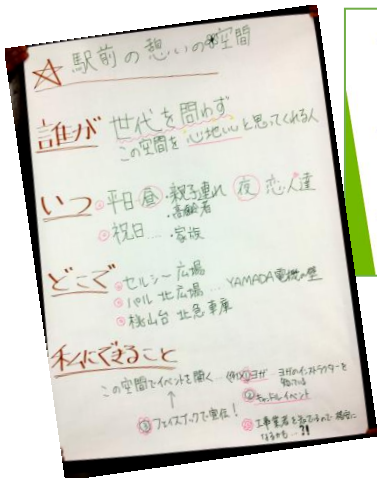 ☆ 駅前の憩いの空間
誰が 世代を問わず
この空間を心地いいと思ってくれる人
いつ 平日 昼 ・親子連れ 夜 恋人達
・高齢者
祝日 ... ・家族
どこで セルシー広場
パル 北広場 ... YAMADA電機の壁
桃山台 北急車庫
私にできること
この空間でイベントを開く ... (例) ①ヨガ ... ヨガのインストラクターを
知っている
②キャンドルイベント
↑
フェイスブックで宣伝!
③工事業者を
になるかも...?!